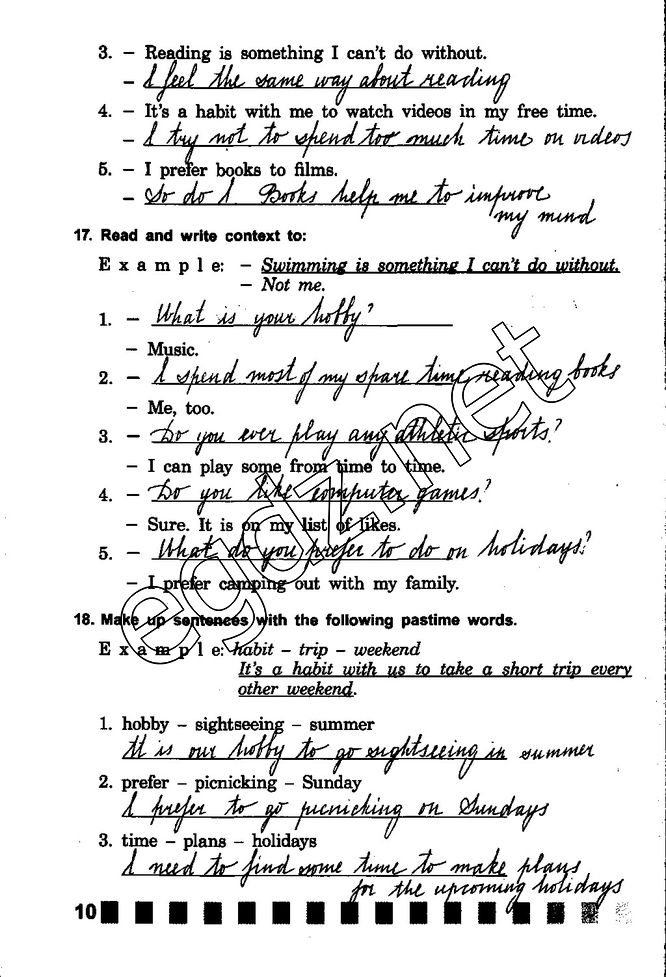 3. – Reading is something I can't do without.
– I feel the same way about reading
4. – It's a habit with me to watch videos in my free time.
– I try not to spend too much time on videos
5. – I prefer books to films.
– So do I Books help me to improve
my mind
17. Read and write context to:
Example: – Swimming is something I can't do without.
– Not me.
1. – What is your hobby?
– Music.
2. – I spend most of my spare time reading books
– Me, too.
3. – Do you ever play any athletic sports?
– I can play some from time to time.
4. – Do you like computer games?
– Sure. It is on my list of likes.
5. – What do you prefer to do on holidays?
– I prefer camping out with my family.
18. Make up sentences with the following pastime words.
Example: habit – trip – weekend
It's a habit with us to take a short trip every
other weekend.
1. hobby – sightseeing – summer
It is our hobby to go sightseeing in summer
2. prefer – picnicking – Sunday
I prefer to go picnicking on Sundays
3. time – plans – holidays
I need to find some time to make plans
for the upcoming holidays
10
egdz.net